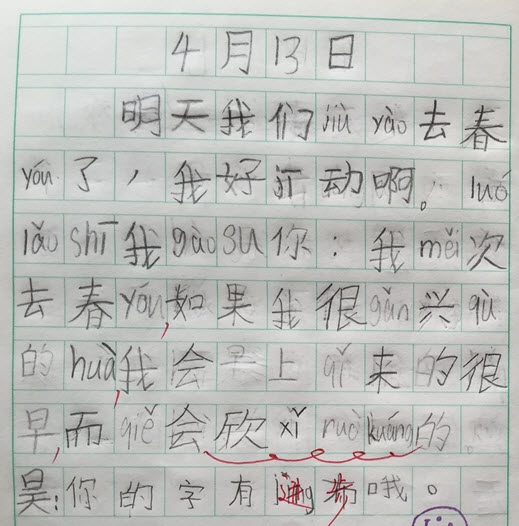 4月13日
明天我们jiù yào去春
yóu了，我好jī动啊。luó
lǎo shī我gào su你：我měi次
去春yóu，如果我很gǎn兴qù
的huà，我会早上qǐ来的很
早，而qiě会欣xǐ ruò kuáng的。
昊：你的字有jìng步哦。